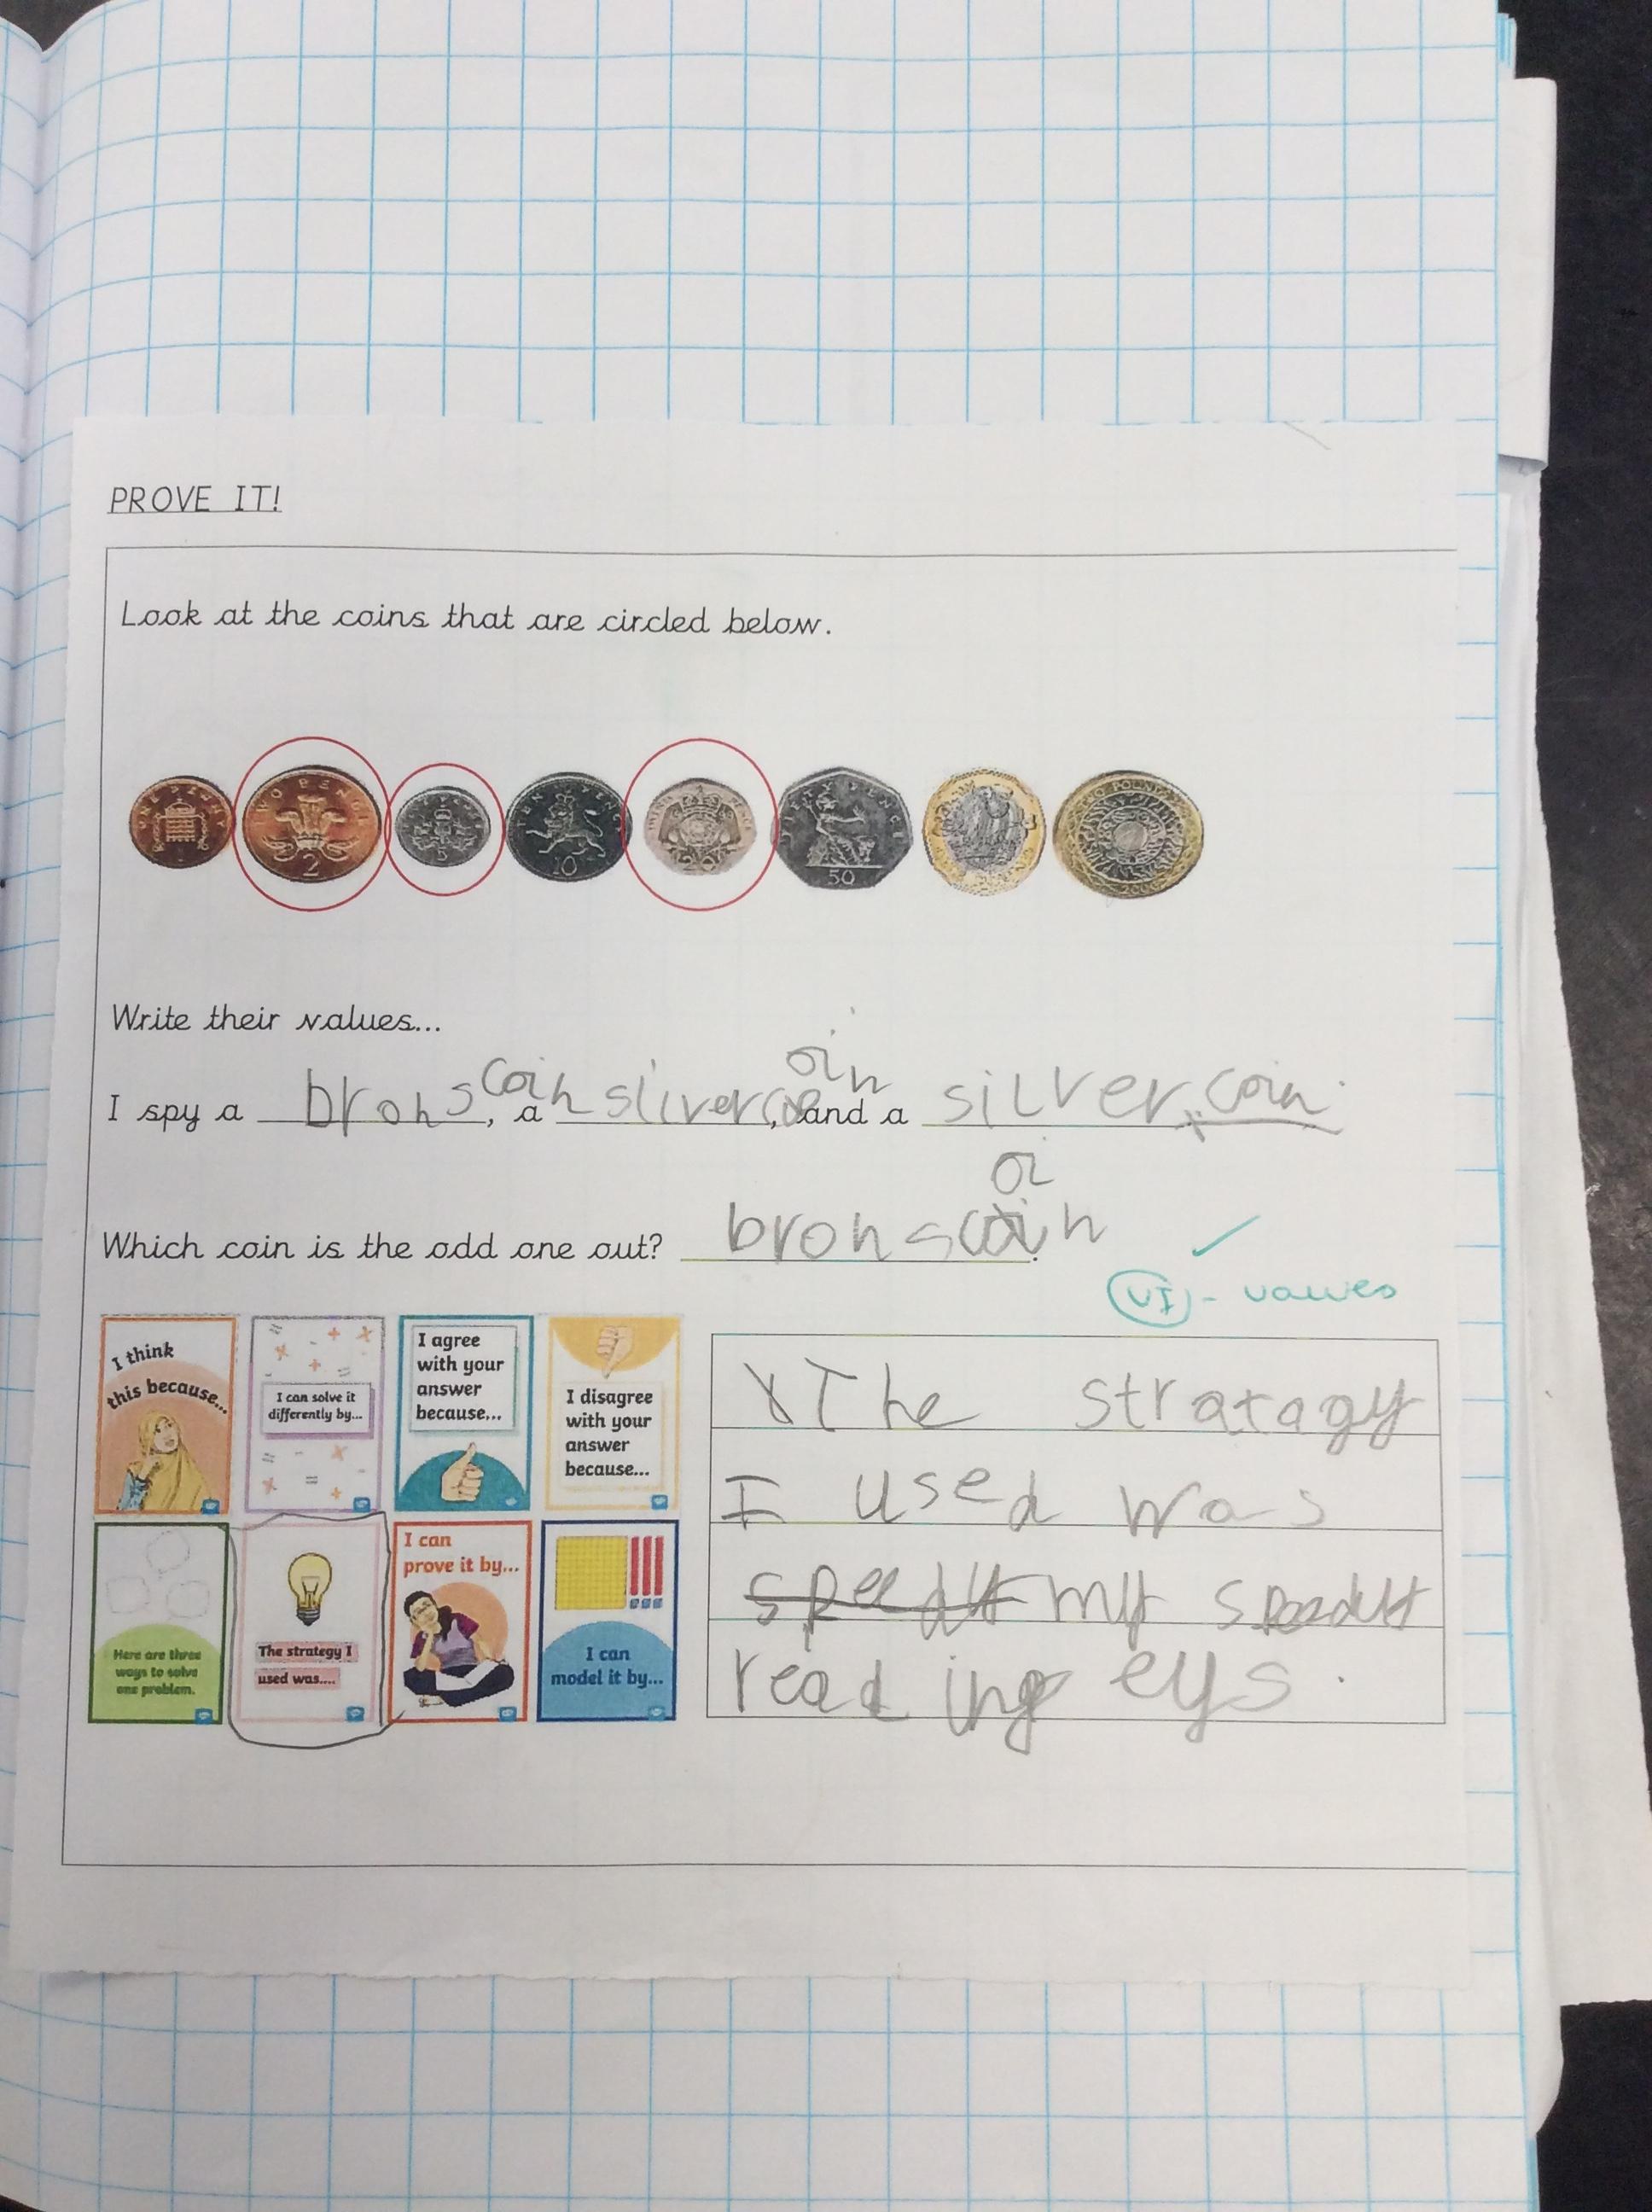 PROVE IT!
Look at the coins that are circled below.
ONE PENNY
TWO PENCE
2
5
TEN PENCE
10
20
FIFTY PENCE
50
TWO POUNDS
Write their values...
I spy a brons coin, a sliver coin, and a silver coin.
Which coin is the odd one out? brons coin.
VI - values
I think
this because...
I can solve it
differently by...
I agree
with your
answer
because...
I disagree
with your
answer
because...
Here are three
ways to solve
one problem.
The strategy I
used was....
I can
prove it by...
I can
model it by...
The stratagy
I used was
my
reading eys.